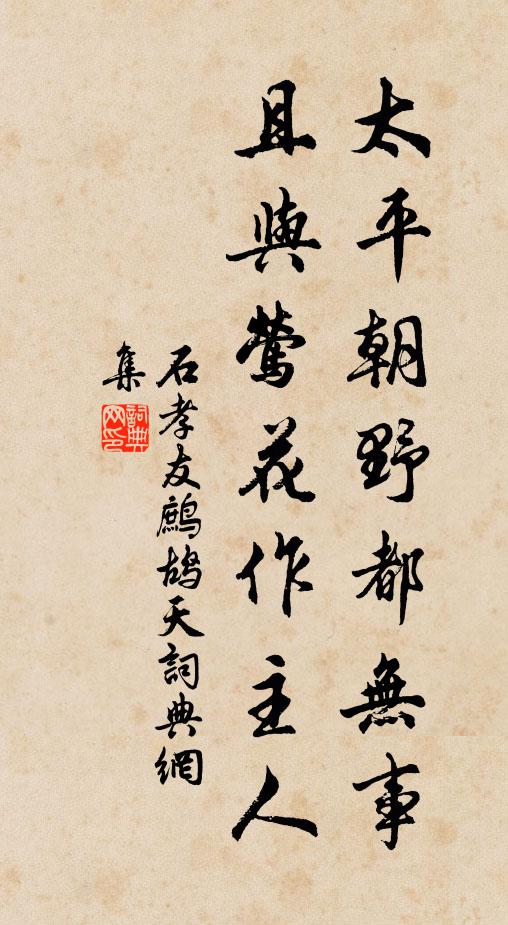 太平朝野都無事
且與鶯花作主人
石孝友鷓鴣天詞典網
集
詞典網印